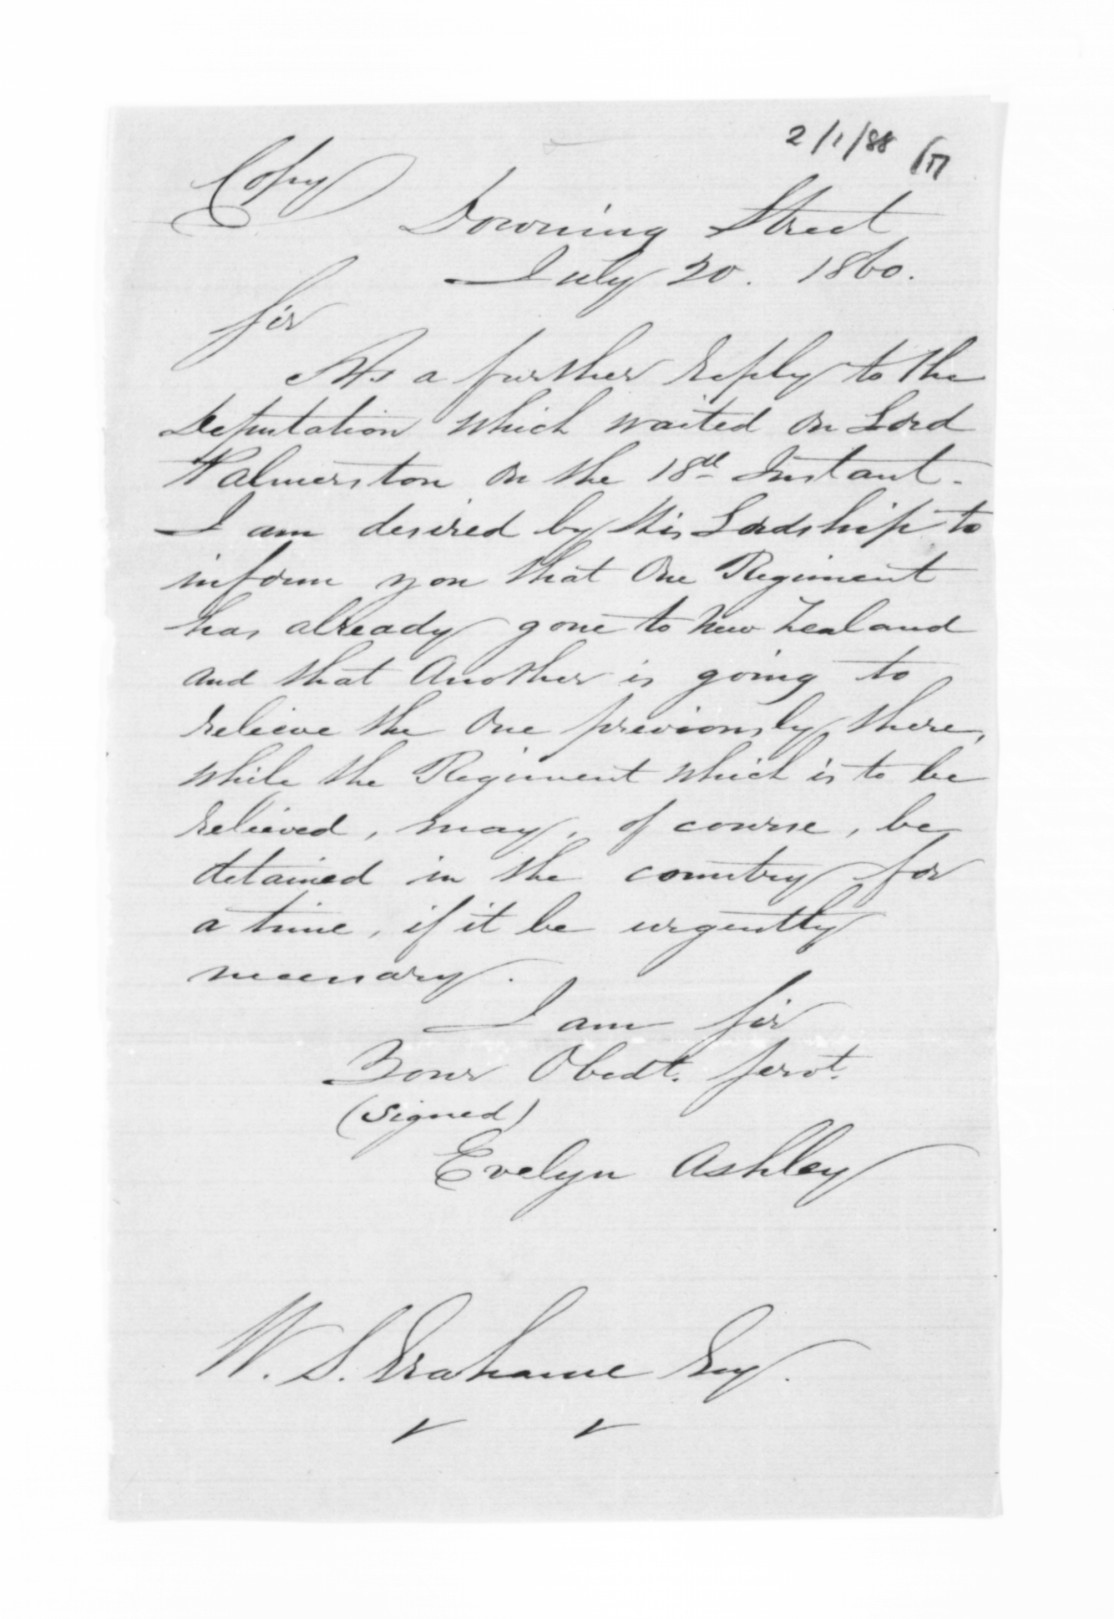 2/1/88 (17
Copy
Downing Street
July 20. 1860.
Sir
As a further reply to the
Deputation which waited on Lord
Palmerston on the 18th Instant.
I am desired by His Lordship to
inform you that One Regiment
has already gone to New Zealand
and that Another is going to
relieve the One previously there,
while the Regiment which is to be
relieved, may, of course, be
detained in the country for
a time, if it be urgently
necessary.
I am Sir
Your Obedt. Servt.
(Signed)
Evelyn Ashley
W. S. Grahame Esq.